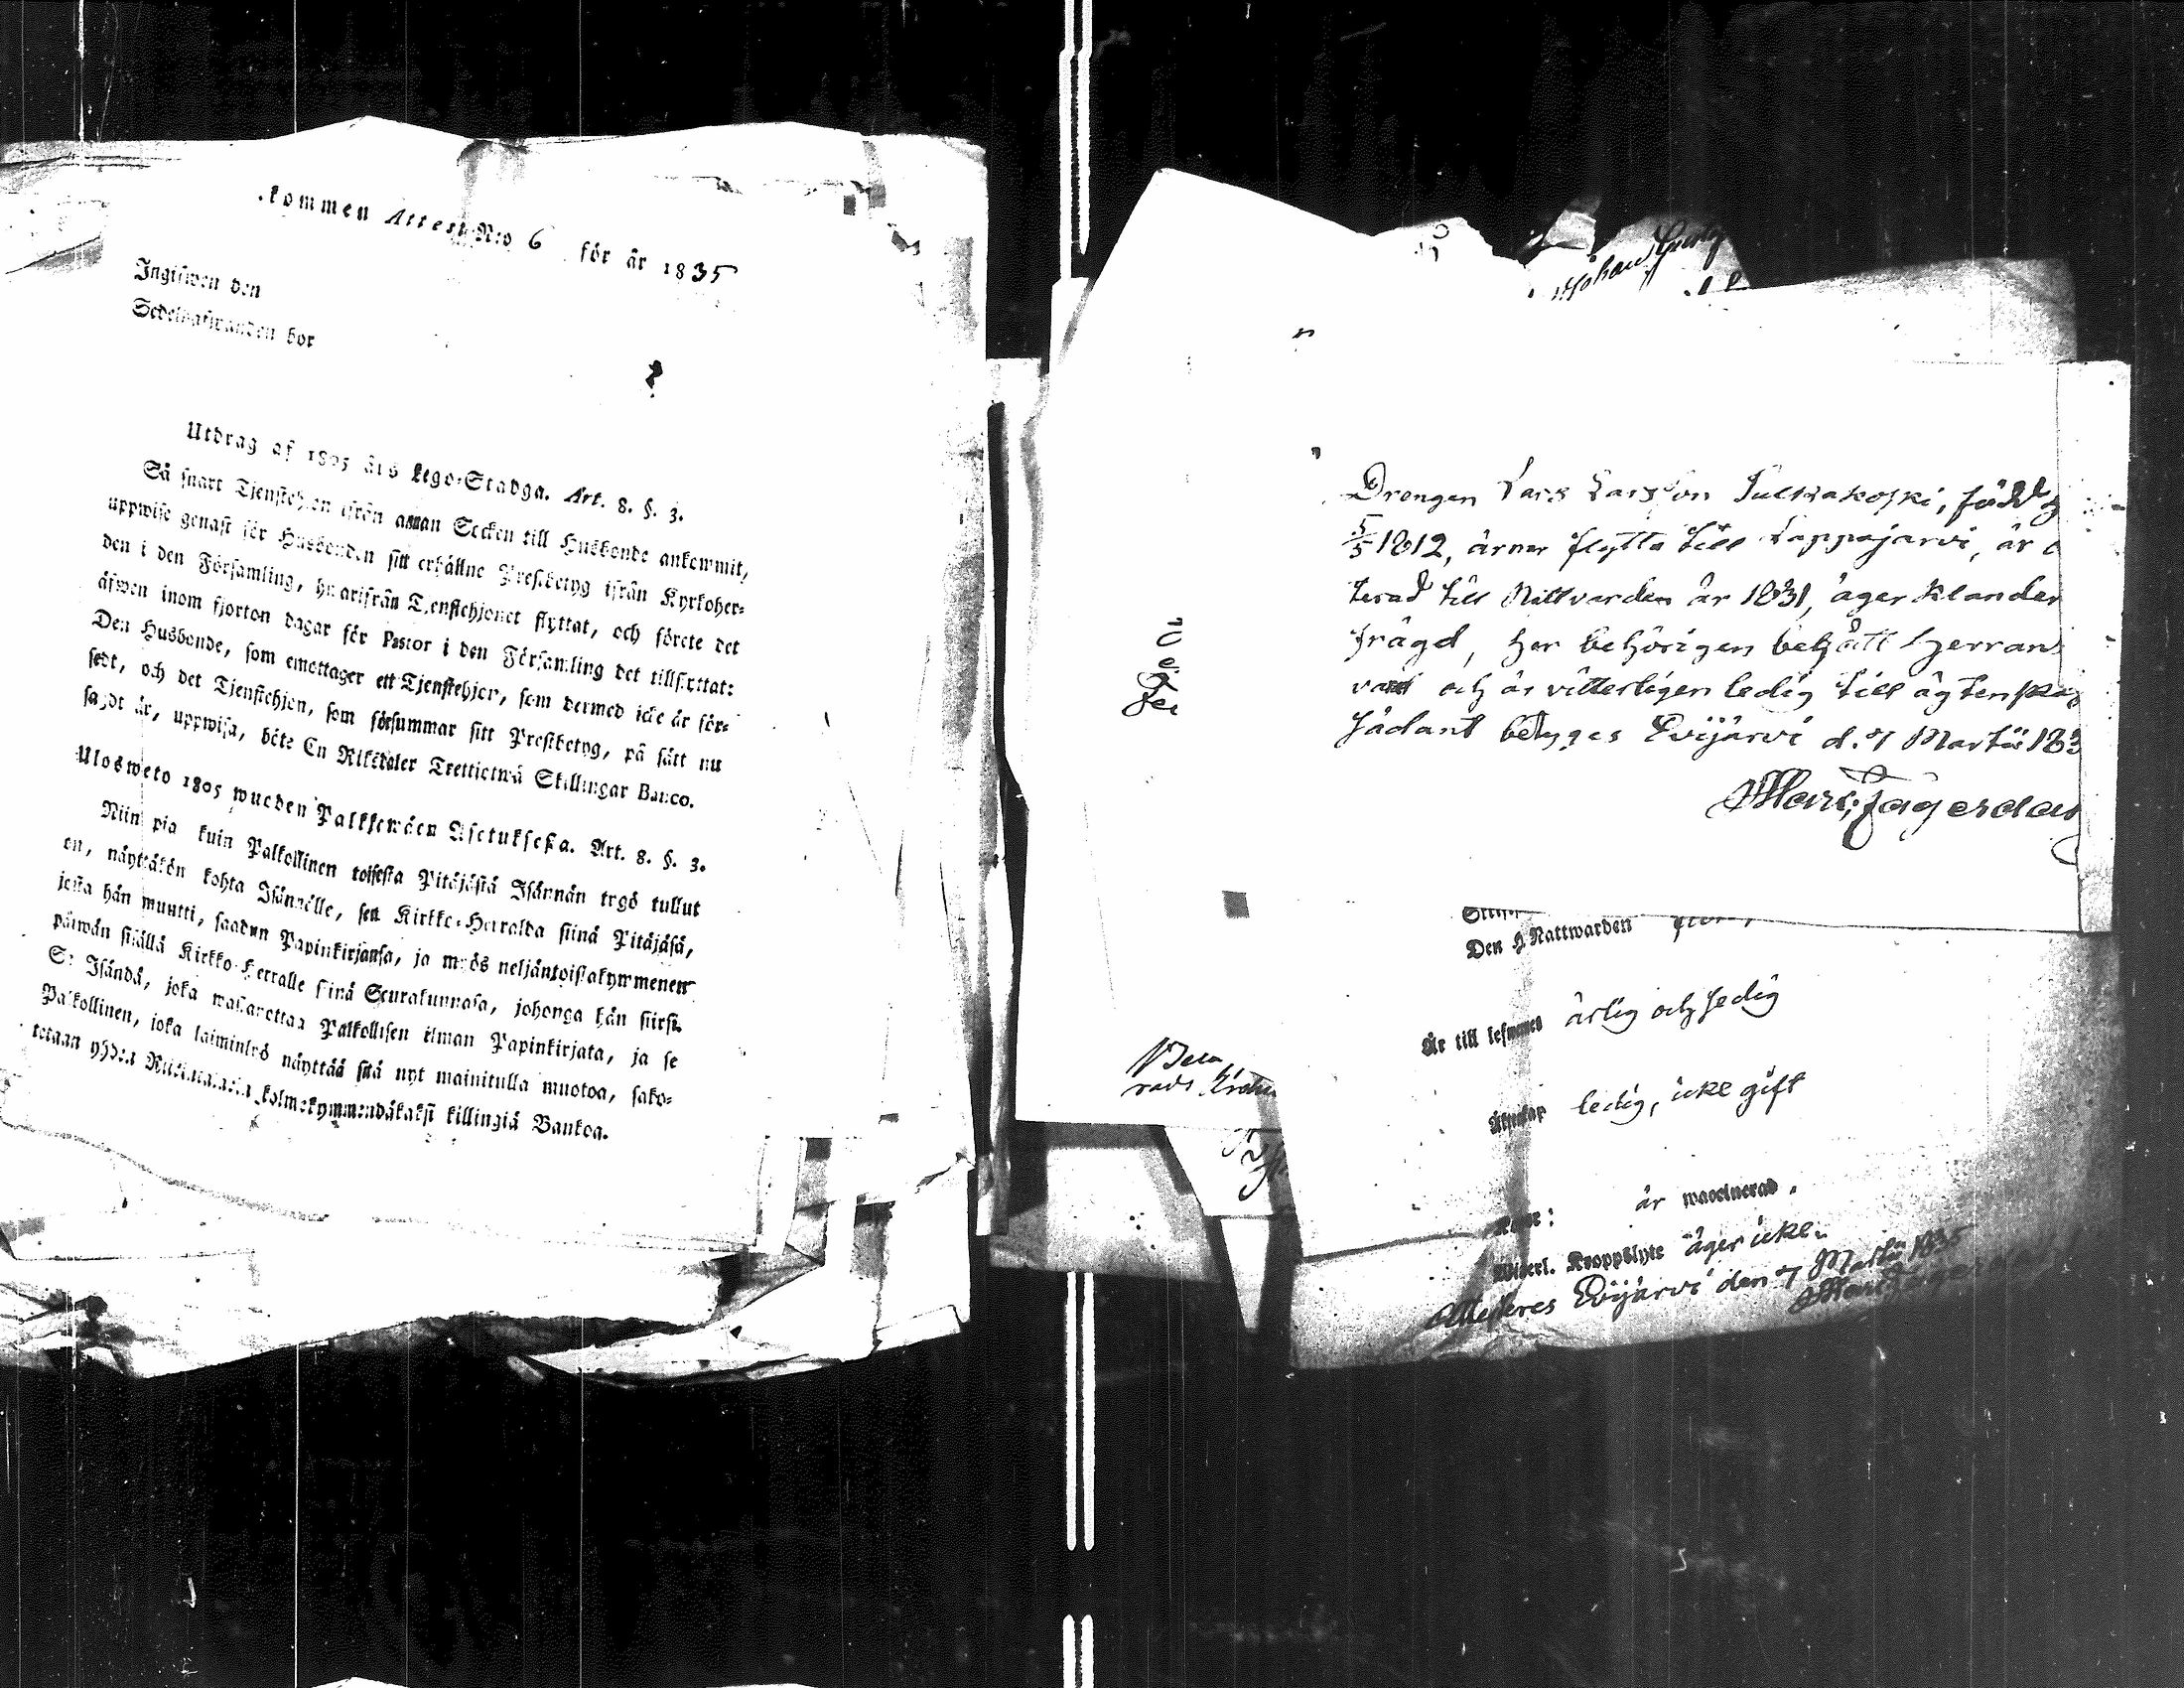 kommen Attest N:o 6 för år 1835
Ingifwen den
Sedelhafwanden bor
Utdrag af 1805 års Lego-Stadga. Art. 8. §. 3.
Så snart Tjenstehjon ifrån annan Socken till Husbonde ankommit,
uppwise genast för Husbonden sitt erhållne Prestbetyg ifrån Kyrkoher-
den i den Församling, hwarifrån Tjenstehjonet flyttat, och förete det
äfwen inom fjorton dagar för Pastor i den Församling det tillflyttat:
Den Husbonde, som emottager ett Tjenstehjon, som dermed icke är för-
sedt, och det Tjenstehjon, som försummar sitt Prestbetyg, på sätt nu
sagdt är, uppwisa, böte En Riksdaler Trettiotwå Skillingar Banco.
Ulosweto 1805 wuoden Palkkewäen Asetuksesta. Art. 8. §. 3.
Niin pia kuin Palkollinen toisesta Pitäjästä Isännän tygö tullut
on, näyttäkön kohta Isännälle, sen Kirkko-Herralda siinä Pitäjäsä,
josta hän muutti, saadun Papinkirjansa, ja myös neljäntoistakymmenen
päiwän sisällä Kirkko-Herralle siinä Seurakunnasa, johonga hän siirsi.
Se Isändä, joka wastanottaa Palkollisen ilman Papinkirjata, ja se
Palkollinen, joka laiminlyö näyttää sitä nyt mainitulla muotoa, sako-
tetaan yhden Riikintalarin kolmekymmendäkaksi killingiä Bankoa.
Johan Gust
Drengen Lars Larsson Julkakoski, född
5/5 1812, ärnar flytta till Lappajärvi, är
terad till Nattvarden år 1831, äger klander
frägd, har behörigen behått Herrans
vard och är vitterligen ledig till ägtenska
sådant betyges Evijärvi d. 7 Martii 183
Den H Nattwarden
Är till lefwerne ärlig och sedig
Äktenskap ledig, icke gift
är waccinerad.
Widerl. Kroppslyte äger icke.
Attesteres Evijärvi den 7 Martii 1835